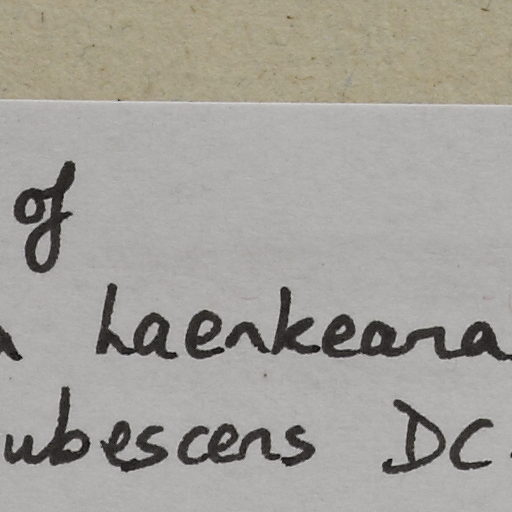 of
a haenkeana
ubescens DC.